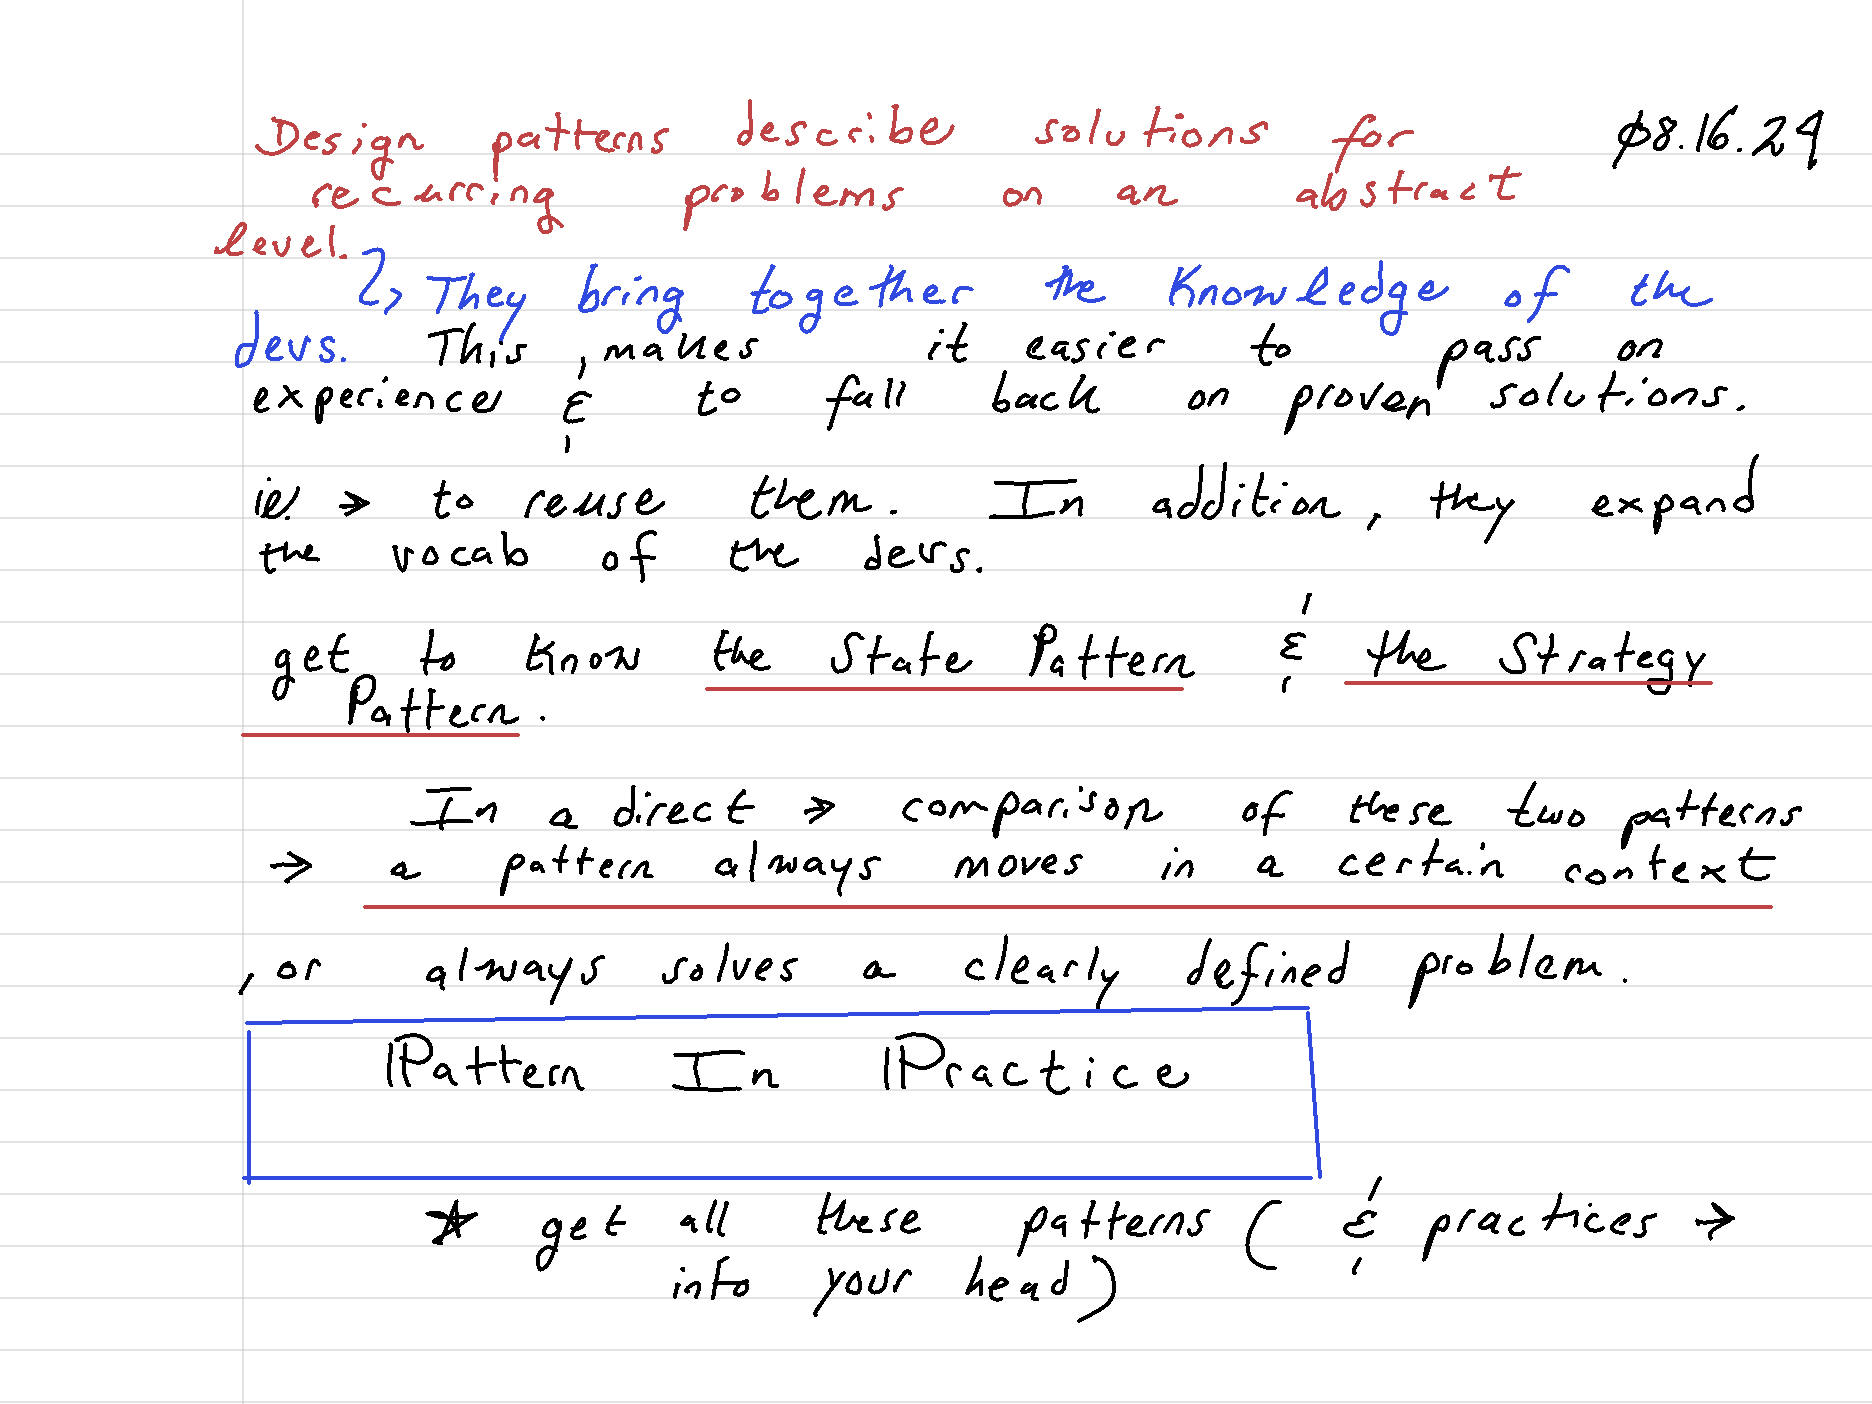 Design patterns describe solutions for
ø8.16.24
recurring problems on an abstract
level.
↳ They bring together the Knowledge of the
devs. This makes it easier to pass on
experience & to fall back on proven solutions.
ie. → to reuse them. In addition, they expand
the vocab of the devs.
get to know the State Pattern & the Strategy
Pattern.
In a direct → comparison of these two patterns
→ a pattern always moves in a certain context
, or always solves a clearly defined problem.
Pattern In Practice
* get all these patterns ( & practices →
into your head)